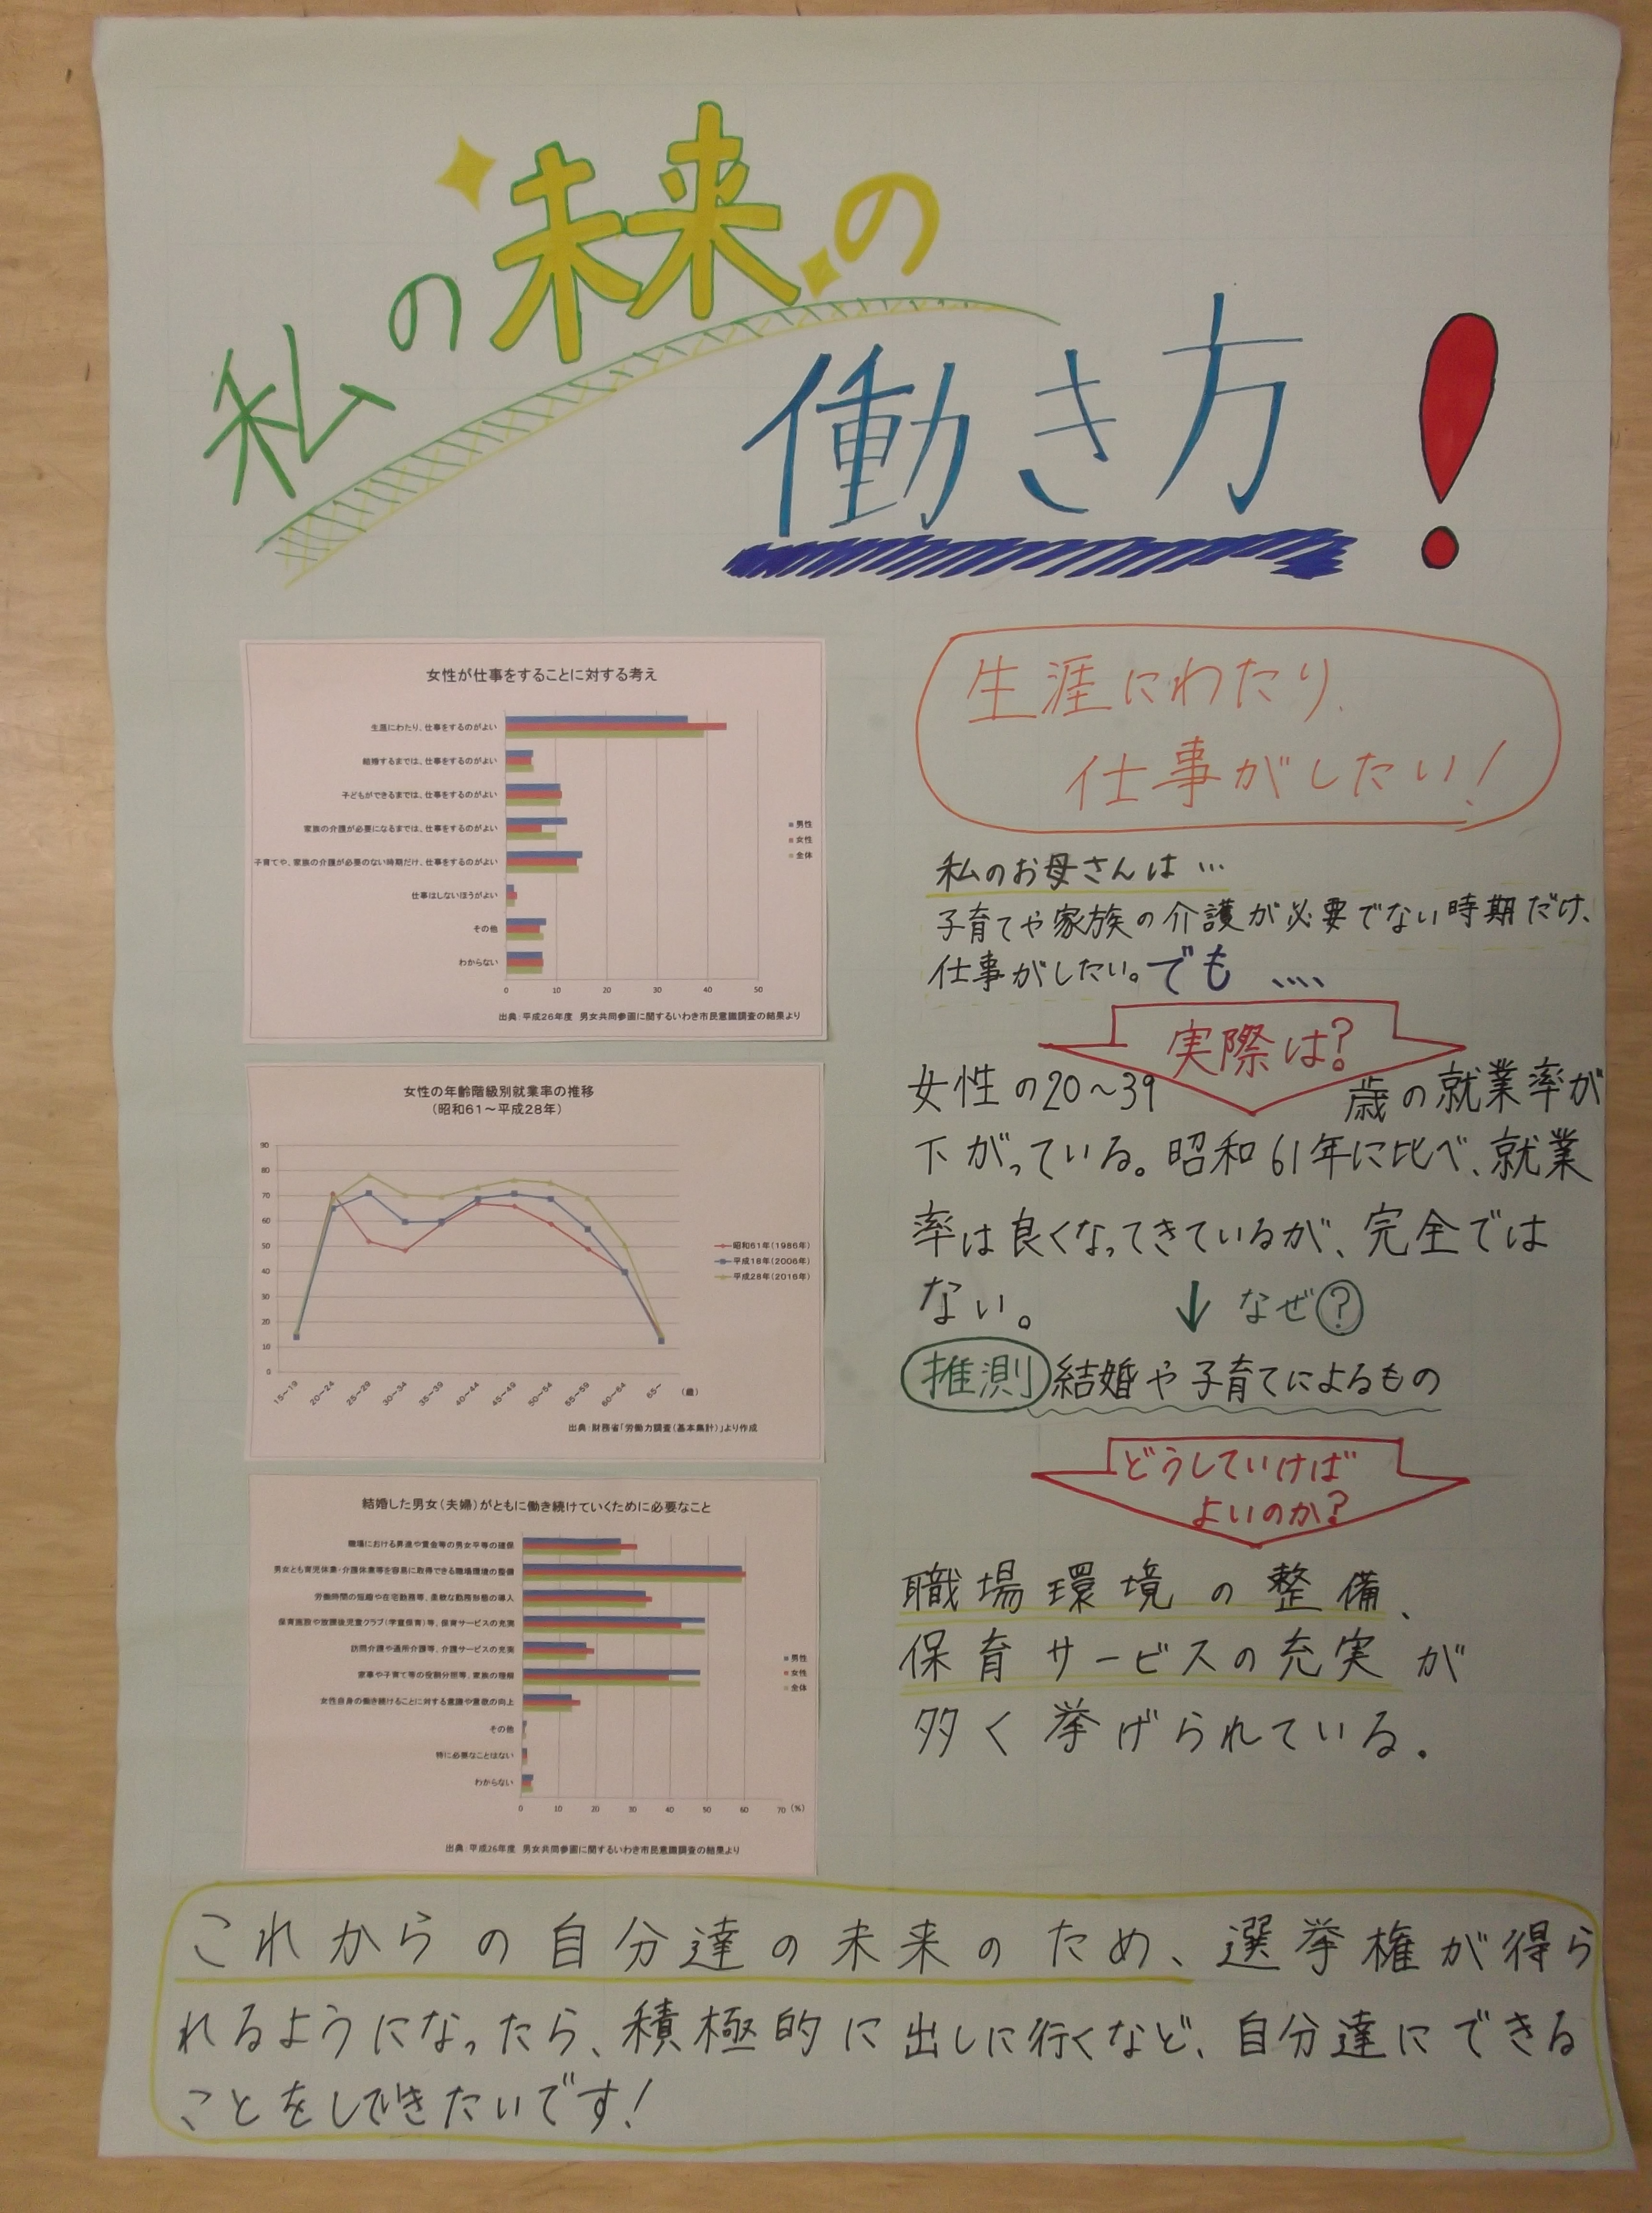 私の未来の
働き方!
女性が仕事をすることに対する考え
生涯にわたり、仕事をするのがよい
結婚するまでは、仕事をするのがよい
子どもができるまでは、仕事をするのがよい
家族の介護が必要になるまでは、仕事をするのがよい
子育てや、家族の介護が必要のない時期だけ、仕事をするのがよい
仕事はしないほうがよい
その他
わからない
男性
女性
全体
0 10 20 30 40 50
出典:平成26年度 男女共同参画に関するいわき市民意識調査の結果より
女性の年齢階級別就業率の推移
(昭和61~平成28年)
90
80
70
60
50
40
30
20
10
0
15~19 20~24 25~29 30~34 35~39 40~44 45~49 50~54 55~59 60~64 65~ (歳)
昭和61年(1986年)
平成18年(2006年)
平成28年(2016年)
出典:財務省「労働力調査(基本集計)」より作成
結婚した男女(夫婦)がともに働き続けていくために必要なこと
職場における昇進や賃金等の男女平等の確保
男女とも育児休業・介護休業等を容易に取得できる職場環境の整備
労働時間の短縮や在宅勤務等、柔軟な勤務形態の導入
保育施設や放課後児童クラブ(学童保育)等、保育サービスの充実
訪問介護や通所介護等、介護サービスの充実
家事や子育て等の役割分担等、家族の理解
女性自身の働き続けることに対する意識や意欲の向上
その他
特に必要なことはない
わからない
男性
女性
全体
0 10 20 30 40 50 60 70 (%)
出典:平成26年度 男女共同参画に関するいわき市民意識調査の結果より
生涯にわたり、
仕事がしたい!
私のお母さんは…
子育てや家族の介護が必要でない時期だけ、
仕事がしたい。でも ....
実際は?
女性の20~39歳の就業率が
下がっている。昭和61年に比べ、就業
率は良くなってきているが、完全では
ない。
↓ なぜ?
推測 結婚や子育てによるもの
どうしていけば
よいのか?
職場環境の整備、
保育サービスの充実が
多く挙げられている。
これからの自分達の未来のため、選挙権が得ら
れるようになったら、積極的に出しに行くなど、自分達にできる
ことをしていきたいです!